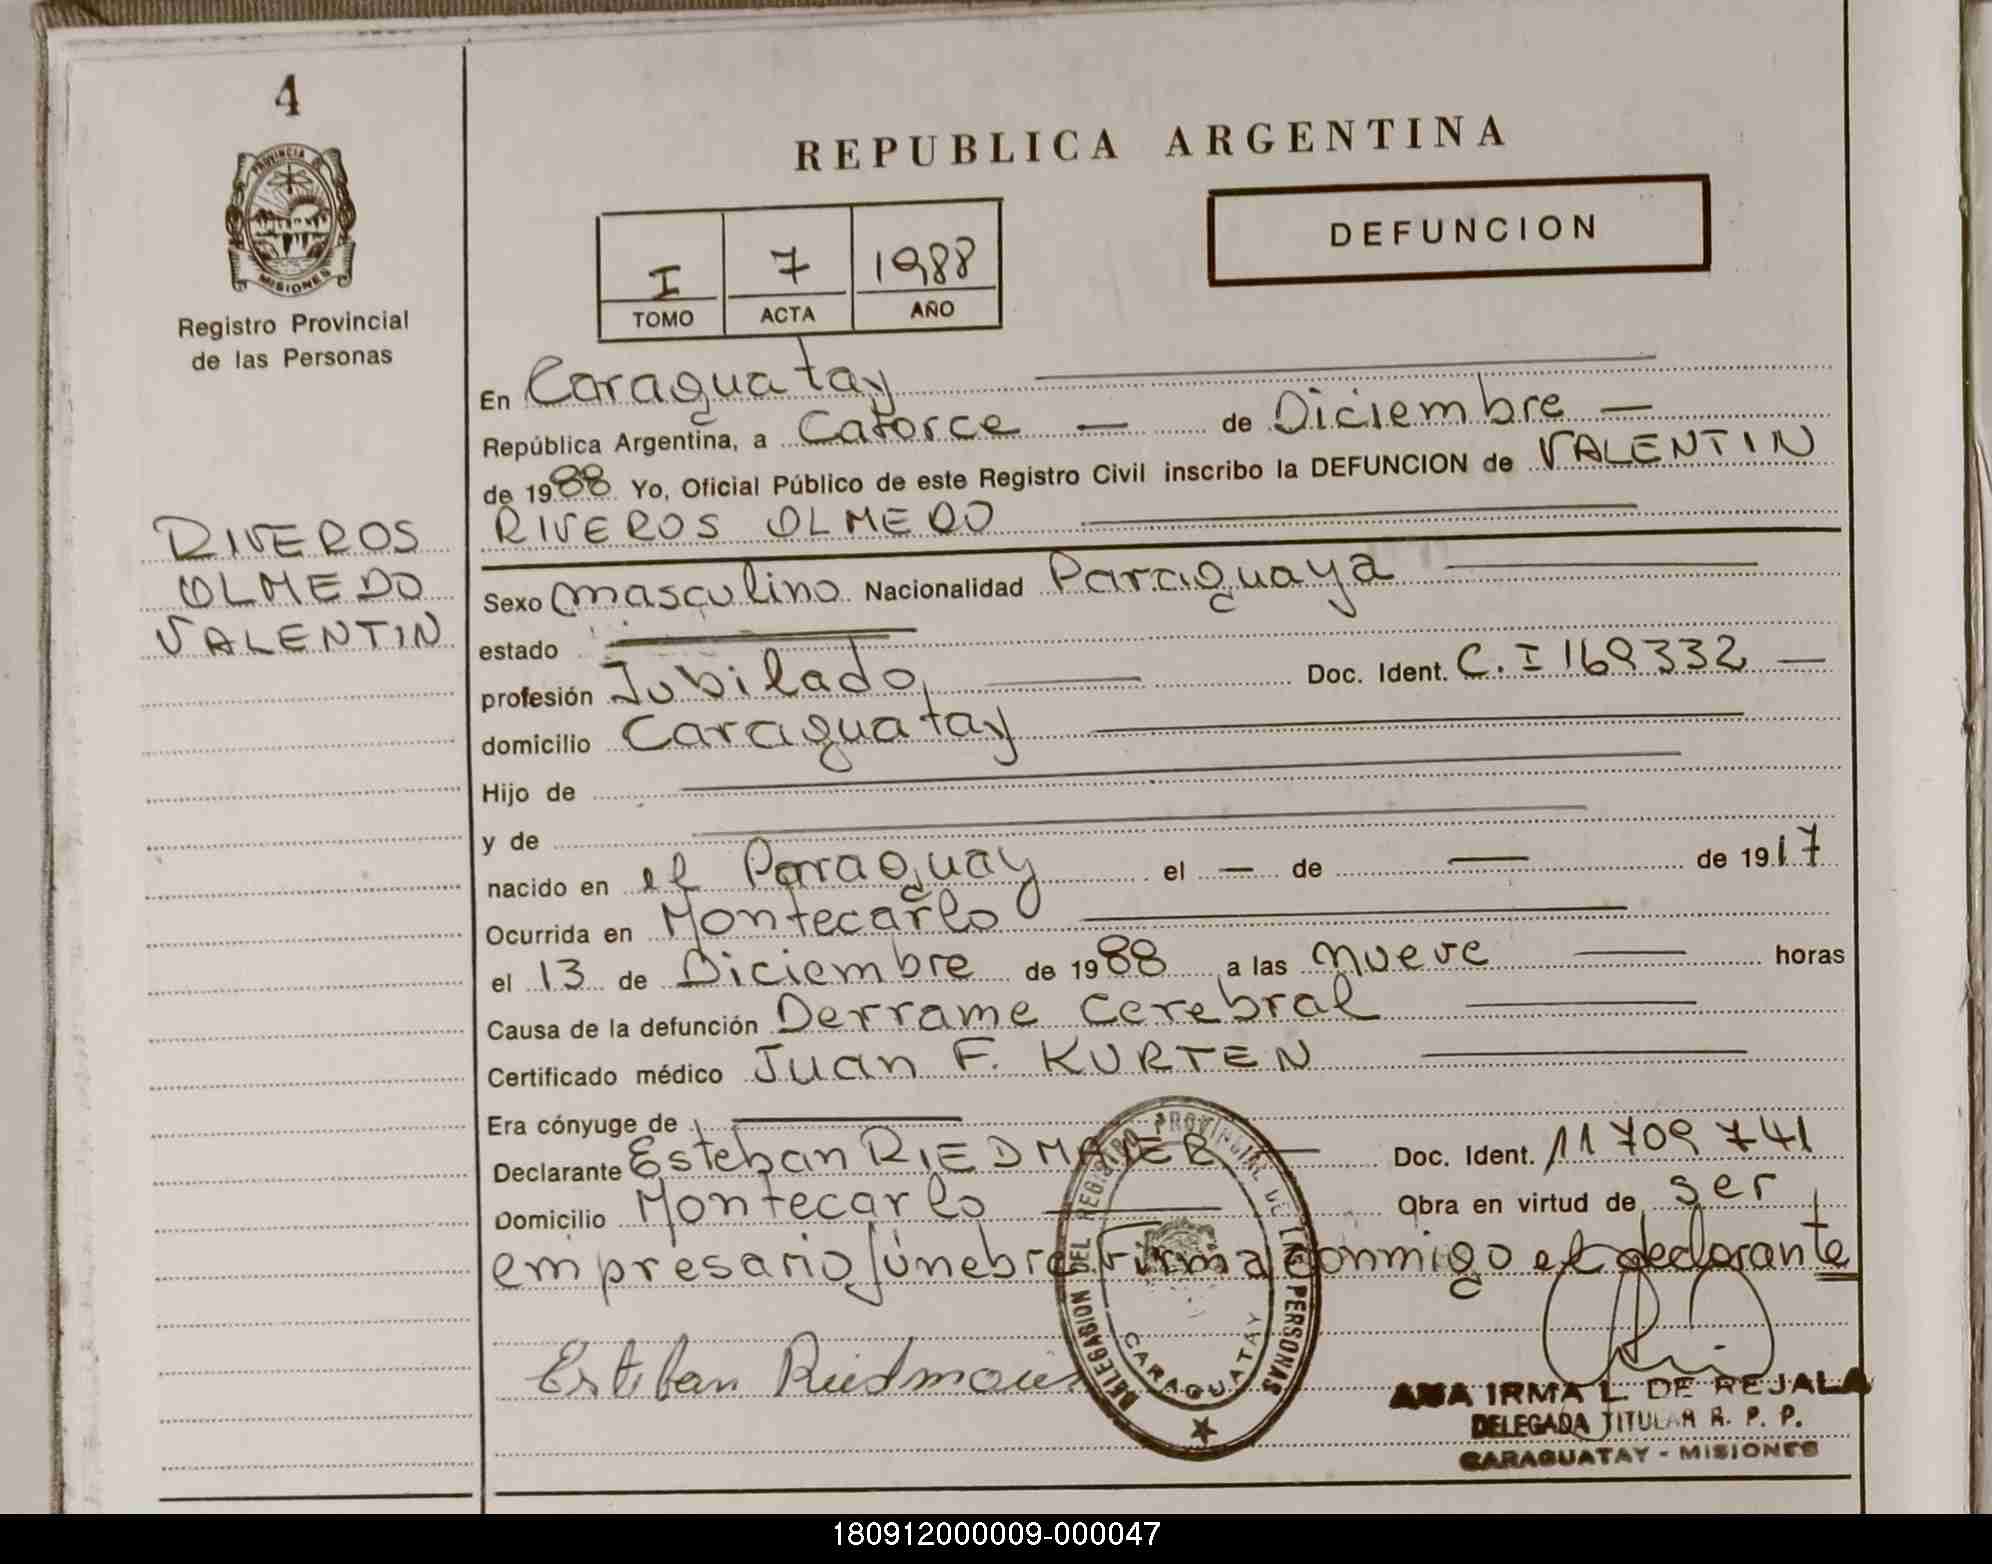 4
PROVINCIA DE
MISIONES
Registro Provincial
de las Personas
RIVEROS
OLMEDO
VALENTIN
REPUBLICA ARGENTINA
DEFUNCION
I 7 1988
TOMO ACTA AÑO
En Caraguatay
República Argentina, a Catorce — de Diciembre —
de 1988 Yo, Oficial Público de este Registro Civil inscribo la DEFUNCION de VALENTIN
RIVEROS OLMEDO
Sexo masculino Nacionalidad Paraguaya
estado
profesión Jubilado Doc. Ident. C.I 169332 —
domicilio Caraguatay
Hijo de
y de
nacido en el Paraguay el — de — de 1917
Ocurrida en Montecarlo
el 13 de Diciembre de 1988 a las nueve horas
Causa de la defunción Derrame Cerebral
Certificado médico Juan F. KURTEN
Era cónyuge de
Declarante Esteban RIEDMAIER Doc. Ident. 11709741
Domicilio Montecarlo Obra en virtud de ser
empresario fúnebre Firma conmigo el declarante
DELEGACION DEL REGISTRO PROVINCIAL DE LAS PERSONAS
CARAGUATAY
Esteban
ANA IRMA L. DE REJALA
DELEGADA TITULAR R. P. P.
CARAGUATAY - MISIONES
180912000009-000047